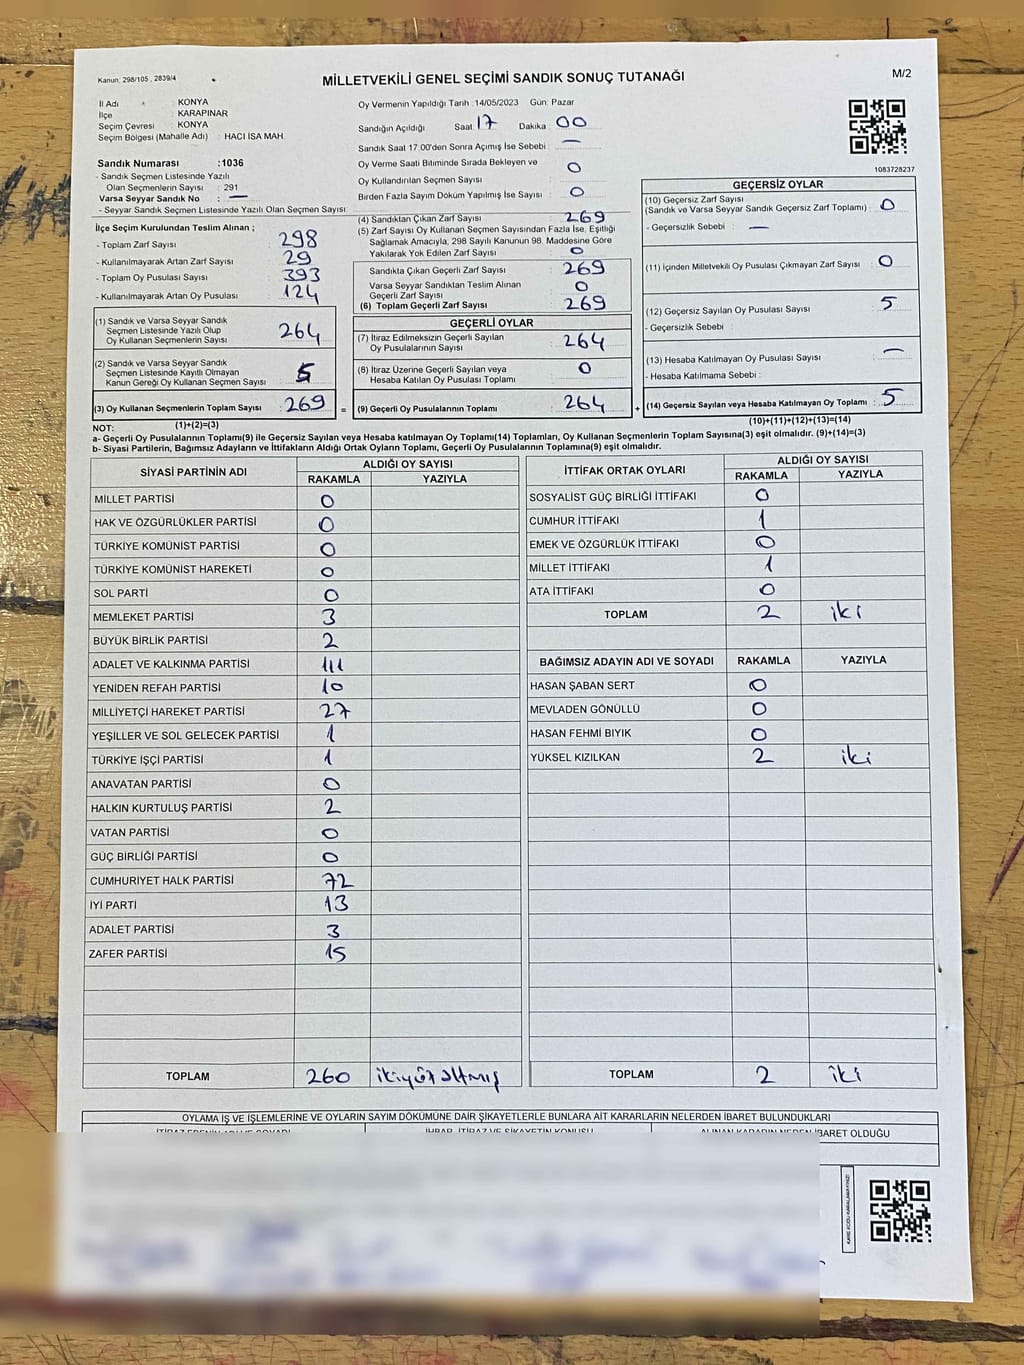 Kanun: 298/105 , 2839/4
MİLLETVEKİLİ GENEL SEÇİMİ SANDIK SONUÇ TUTANAĞI
M/2
İl Adı : KONYA
İlçe : KARAPINAR
Seçim Çevresi : KONYA
Seçim Bölgesi (Mahalle Adı) : HACI İSA MAH.
Sandık Numarası :1036
- Sandık Seçmen Listesinde Yazılı
Olan Seçmenlerin Sayısı : 291
Varsa Seyyar Sandık No : —
- Seyyar Sandık Seçmen Listesinde Yazılı Olan Seçmen Sayısı:
İlçe Seçim Kurulundan Teslim Alınan ;
- Toplam Zarf Sayısı : 298
- Kullanılmayarak Artan Zarf Sayısı : 29
- Toplam Oy Pusulası Sayısı : 393
- Kullanılmayarak Artan Oy Pusulası : 124
(1) Sandık ve Varsa Seyyar Sandık
Seçmen Listesinde Yazılı Olup
Oy Kullanan Seçmenlerin Sayısı : 264
(2) Sandık ve Varsa Seyyar Sandık
Seçmen Listesinde Kayıtlı Olmayan
Kanun Gereği Oy Kullanan Seçmen Sayısı : 5
(3) Oy Kullanan Seçmenlerin Toplam Sayısı : 269
(1)+(2)=(3)
Oy Vermenin Yapıldığı Tarih :14/05/2023 Gün: Pazar
Sandığın Açıldığı Saat: 17 Dakika : 00
Sandık Saat 17:00'den Sonra Açımış İse Sebebi : —
Oy Verme Saati Bitiminde Sırada Bekleyen ve
Oy Kullandırılan Seçmen Sayısı : 0
Birden Fazla Sayım Döküm Yapılmış İse Sayısı : 0
(4) Sandıktan Çıkan Zarf Sayısı : 269
(5) Zarf Sayısı Oy Kullanan Seçmen Sayısından Fazla İse, Eşitliği
Sağlamak Amacıyla, 298 Sayılı Kanunun 98. Maddesine Göre
Yakılarak Yok Edilen Zarf Sayısı : 0
Sandıkta Çıkan Geçerli Zarf Sayısı : 269
Varsa Seyyar Sandıktan Teslim Alınan
Geçerli Zarf Sayısı : 0
(6) Toplam Geçerli Zarf Sayısı : 269
GEÇERLİ OYLAR
(7) İtiraz Edilmeksizin Geçerli Sayılan
Oy Pusulalarının Sayısı : 264
(8) İtiraz Üzerine Geçerli Sayılan veya
Hesaba Katılan Oy Pusulası Toplamı : 0
= (9) Geçerli Oy Pusulalarının Toplamı : 264 +
1083728237
GEÇERSİZ OYLAR
(10) Geçersiz Zarf Sayısı
(Sandık ve Varsa Seyyar Sandık Geçersiz Zarf Toplamı) : 0
- Geçersizlik Sebebi : —
(11) İçinden Milletvekili Oy Pusulası Çıkmayan Zarf Sayısı : 0
(12) Geçersiz Sayılan Oy Pusulası Sayısı : 5
- Geçersizlik Sebebi :
(13) Hesaba Katılmayan Oy Pusulası Sayısı : —
- Hesaba Katılmama Sebebi :
(14) Geçersiz Sayılan veya Hesaba Katılmayan Oy Toplamı : 5
(10)+(11)+(12)+(13)=(14)
NOT:
a- Geçerli Oy Pusulalarının Toplamı(9) ile Geçersiz Sayılan veya Hesaba katılmayan Oy Toplamı(14) Toplamları, Oy Kullanan Seçmenlerin Toplam Sayısına(3) eşit olmalıdır. (9)+(14)=(3)
b- Siyasi Partilerin, Bağımsız Adayların ve İttifakların Aldığı Ortak Oyların Toplamı, Geçerli Oy Pusulalarının Toplamına(9) eşit olmalıdır.
SİYASİ PARTİNİN ADI ALDIĞI OY SAYISI
RAKAMLA YAZIYLA
MİLLET PARTİSİ 0
HAK VE ÖZGÜRLÜKLER PARTİSİ 0
TÜRKİYE KOMÜNİST PARTİSİ 0
TÜRKİYE KOMÜNİST HAREKETİ 0
SOL PARTİ 0
MEMLEKET PARTİSİ 3
BÜYÜK BİRLİK PARTİSİ 2
ADALET VE KALKINMA PARTİSİ 111
YENİDEN REFAH PARTİSİ 10
MİLLİYETÇİ HAREKET PARTİSİ 27
YEŞİLLER VE SOL GELECEK PARTİSİ 1
TÜRKİYE İŞÇİ PARTİSİ 1
ANAVATAN PARTİSİ 0
HALKIN KURTULUŞ PARTİSİ 2
VATAN PARTİSİ 0
GÜÇ BİRLİĞİ PARTİSİ 0
CUMHURİYET HALK PARTİSİ 72
İYİ PARTİ 13
ADALET PARTİSİ 3
ZAFER PARTİSİ 15
TOPLAM 260 ikiyüzaltmış
İTTİFAK ORTAK OYLARI ALDIĞI OY SAYISI
RAKAMLA YAZIYLA
SOSYALİST GÜÇ BİRLİĞİ İTTİFAKI 0
CUMHUR İTTİFAKI 1
EMEK VE ÖZGÜRLÜK İTTİFAKI 0
MİLLET İTTİFAKI 1
ATA İTTİFAKI 0
TOPLAM 2 iki
BAĞIMSIZ ADAYIN ADI VE SOYADI RAKAMLA YAZIYLA
HASAN ŞABAN SERT 0
MEVLADEN GÖNÜLLÜ 0
HASAN FEHMİ BIYIK 0
YÜKSEL KIZILKAN 2 iki
TOPLAM 2 iki
OYLAMA İŞ VE İŞLEMLERİNE VE OYLARIN SAYIM DÖKÜMÜNE DAİR ŞİKAYETLERLE BUNLARA AİT KARARLARIN NELERDEN İBARET BULUNDUKLARI
İHBAR, İTİRAZ VE ŞİKAYETİN KONUSU
ALINAN KARARIN NEDEN İBARET OLDUĞU